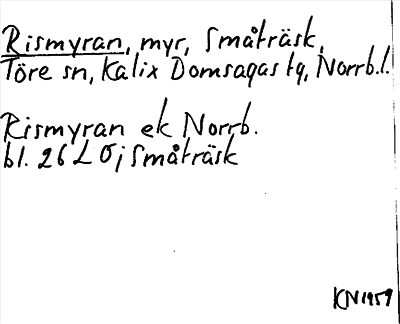 Rismyran, myr, Småträsk,
Töre sn, Kalix Domsagas tg, Norrb.l.
Rismyran ek Norrb.
bl. 26 L Ö j Småträsk
KN 1959